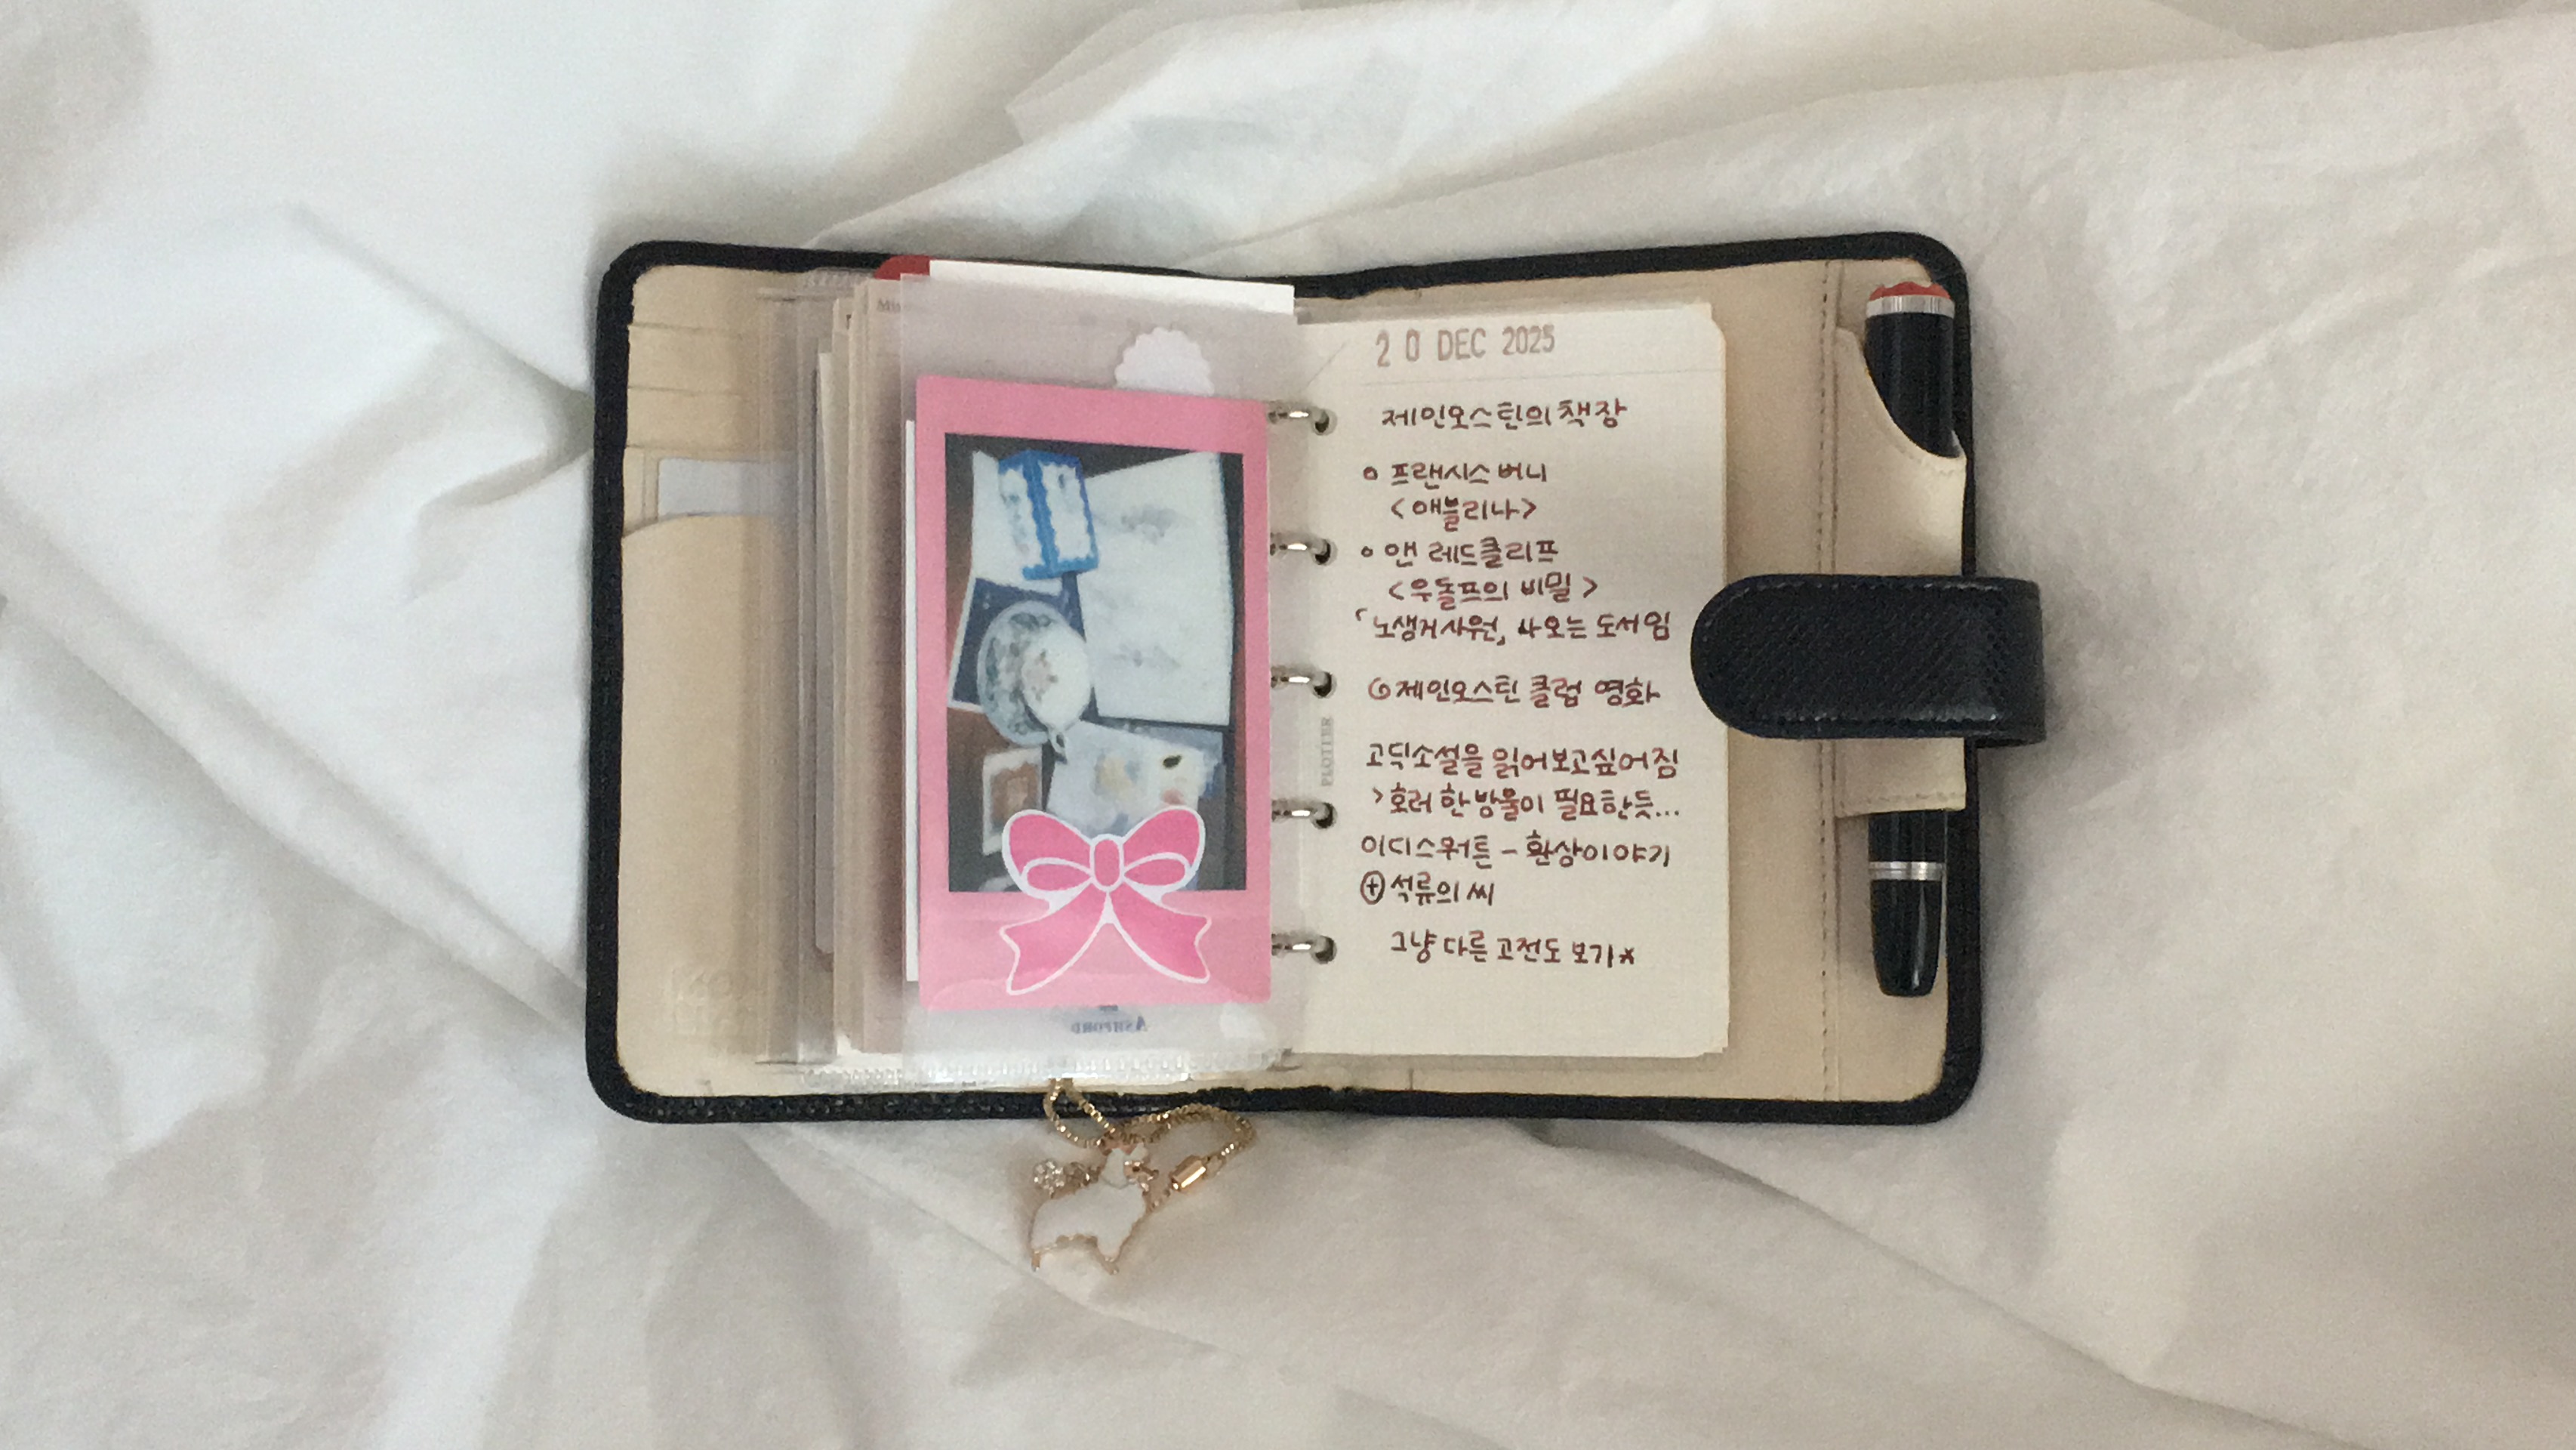 20 DEC 2025
제인오스틴의 책장
프랜시스 버니
<애블리나>
앤 레드클리프
<우돌프의 비밀>
「노생거사원」 나오는 도서임
제인오스틴 클럽 영화
고딕소설을 읽어보고싶어짐
>호러 한 방울이 필요한듯...
이디스워튼 - 환상이야기
⊕ 석류의 씨
그냥 다른 고전도 보기*
PLOTTER
ASHFORD